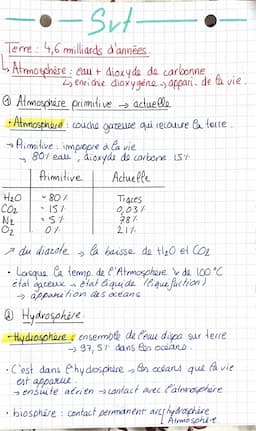 Svt
Terre : 4,6 milliards d'années.
↳ Atmosphère : eau + dioxyde de carbonne
↳ enrichie dioxygène → appari. de la vie.
① Atmosphère primitive → actuelle
• Atmosphère : couche gazeuse qui recouvre la terre.
→ Primitive : impropre à la vie
→ 80% eau, dioxyde de carbone 15%
Primitive Actuelle
H2O ~80% Traces
CO2 ~15% 0,03%
N2 ~5% 78%
O2 0% 21%
↗ du diazote → la baisse de H2O et CO2
• Lorsque la temp. de l'Atmosphère ↘ de 100°C
état gazeux → état liquide (liquefaction)
→ apparition des océans
② Hydrosphère.
• Hydrosphère : ensemble de l'eau dispo sur terre
→ 97,5% dans les océans.
• C'est dans l'hydrosphère → les océans que la vie
est apparue.
→ ensuite aérien → contact avec l'atmosphère
• biosphère : contact permanent avc hydrosphère
Atmosphère.